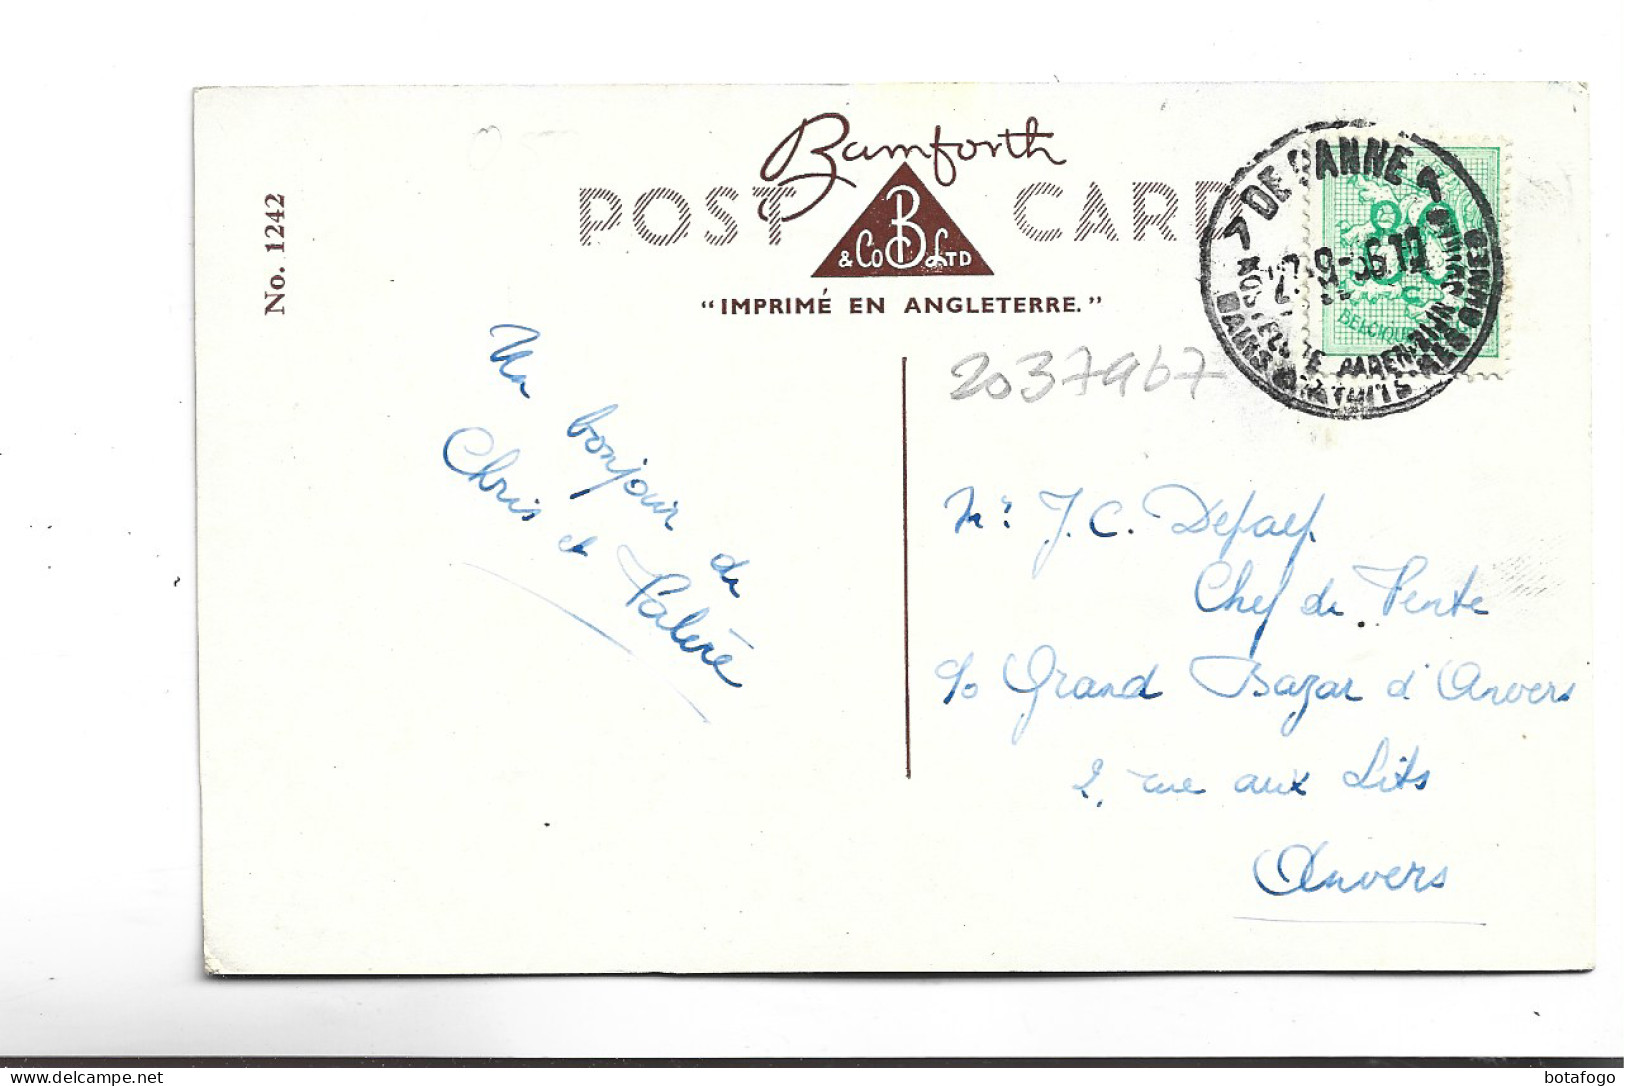 No. 1242
Bamforth
POST CARD
B
& Co LTD
"IMPRIMÉ EN ANGLETERRE."
DE PANNE
BELGIQUE
2037967
Un bonjour de
Chris et Valère
Mr. J. C. Depaep
Chef de Vente
c/o Grand Bazar d'Anvers
2, rue aux Lits
Anvers
delcampe.net
botafogo